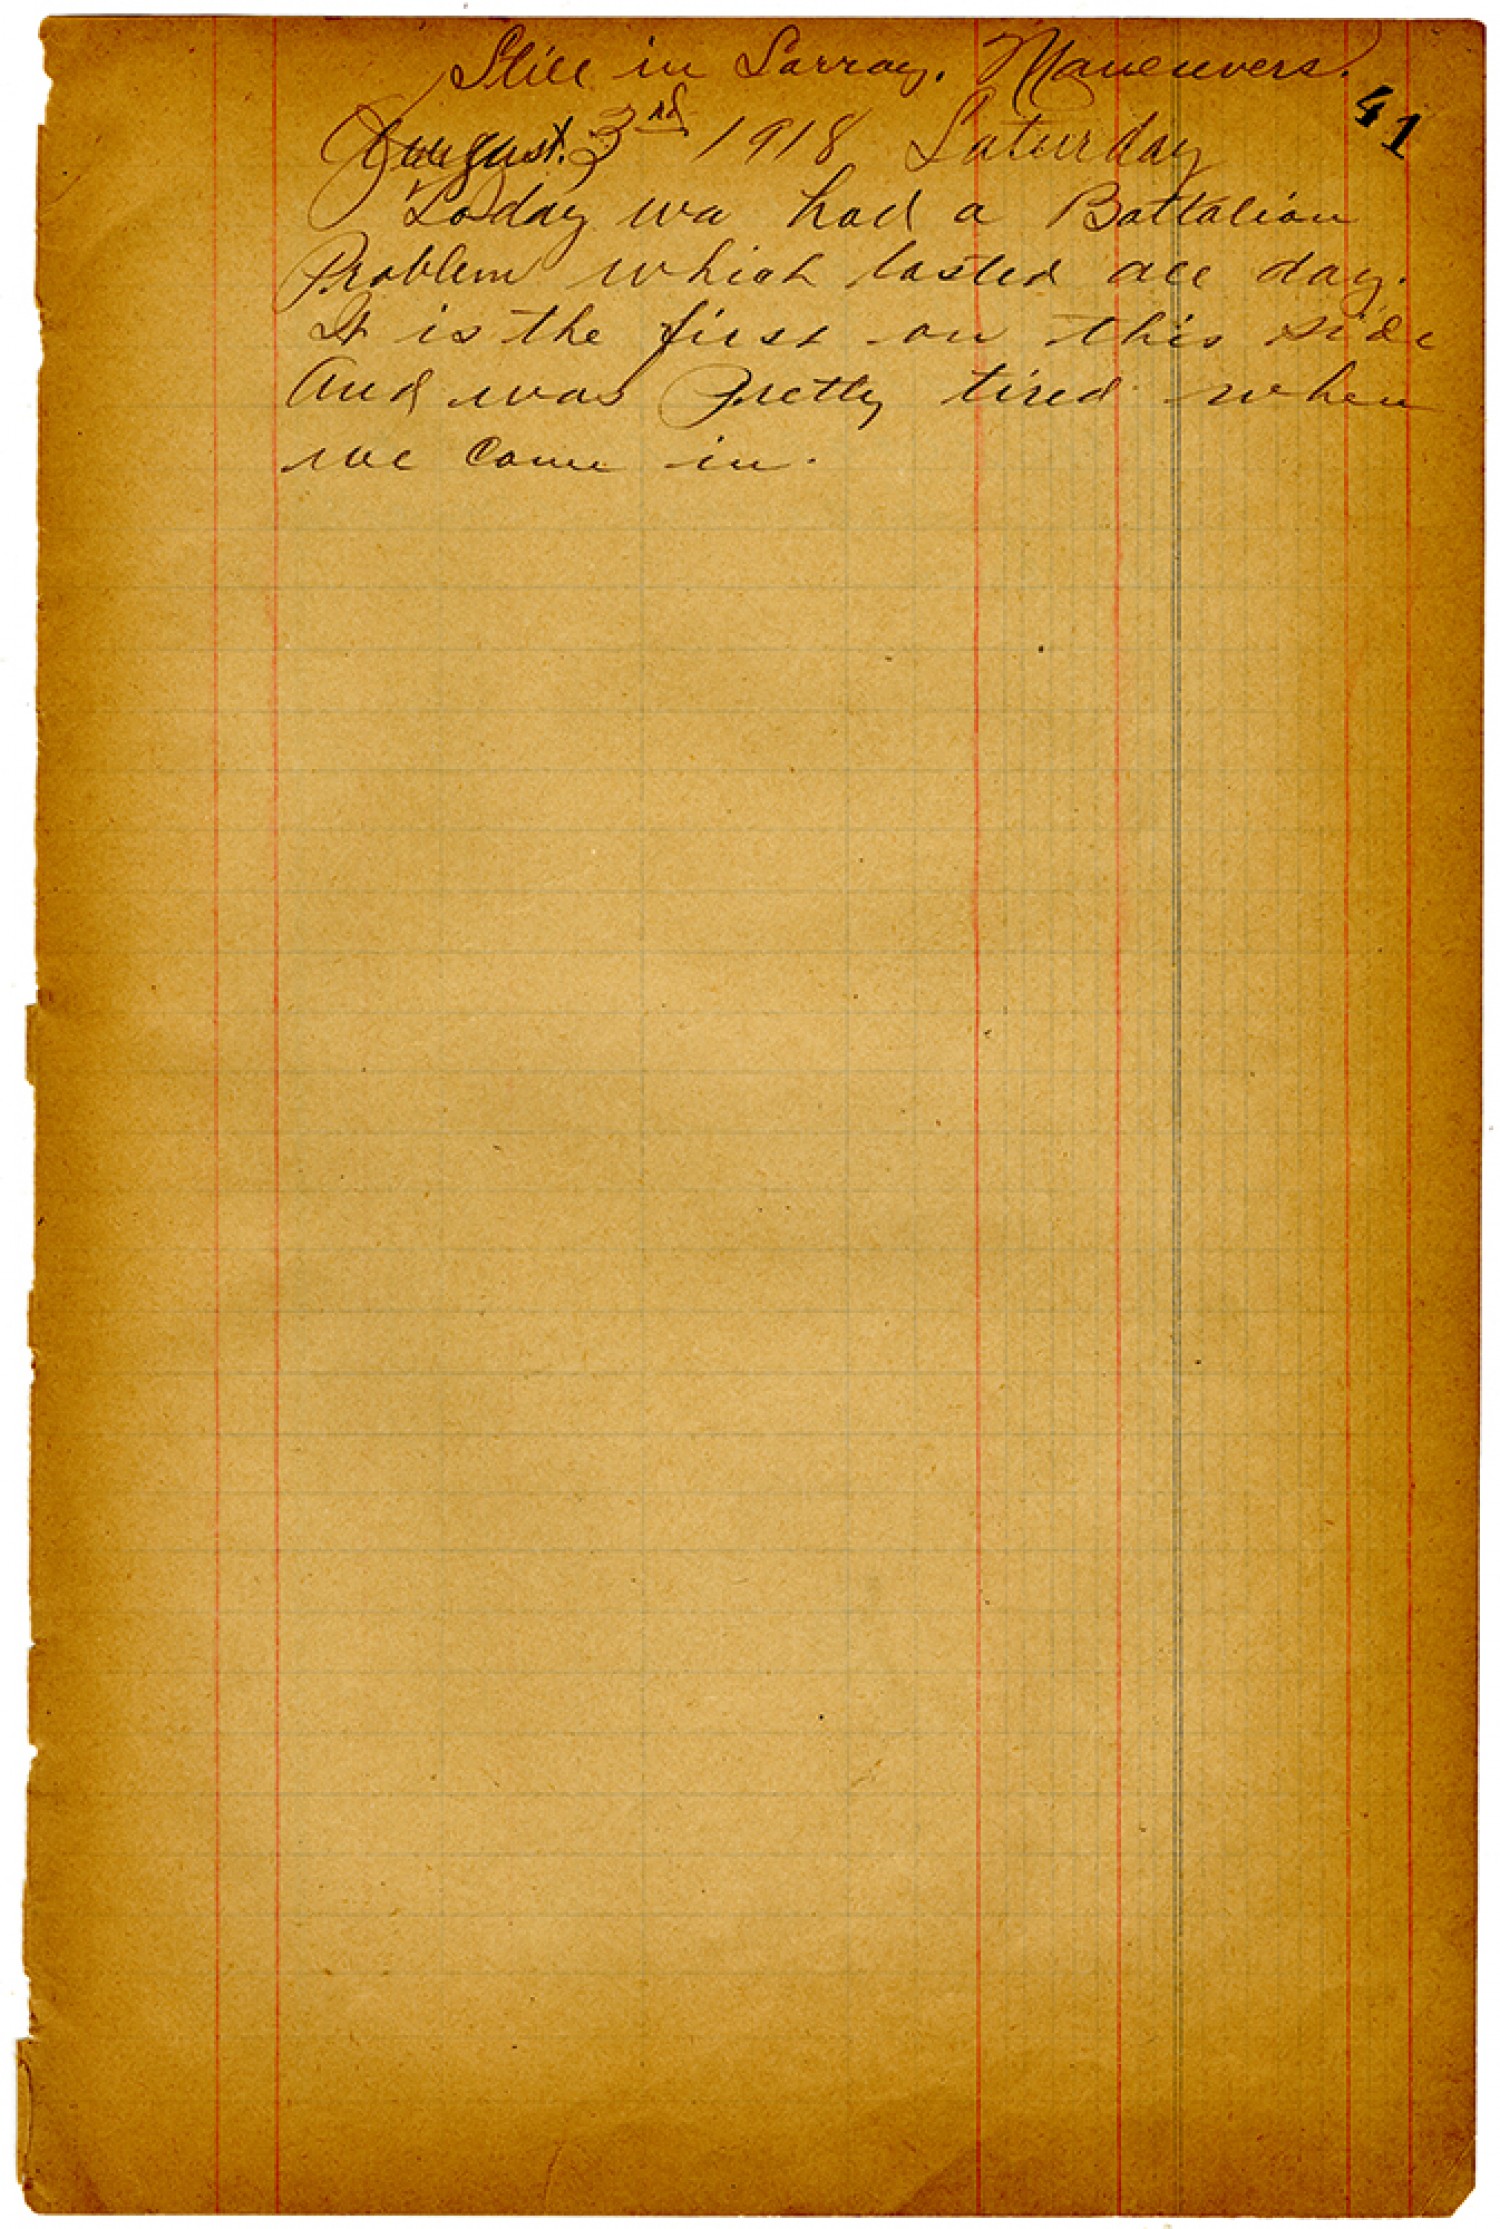 Still in Sarrey. Maneuvers.
41
August. 3rd 1918 Saturday
Today wa had a Battalion
Problem which lasted all day.
It is the first on this side
And was Pretty tired when
we came in.